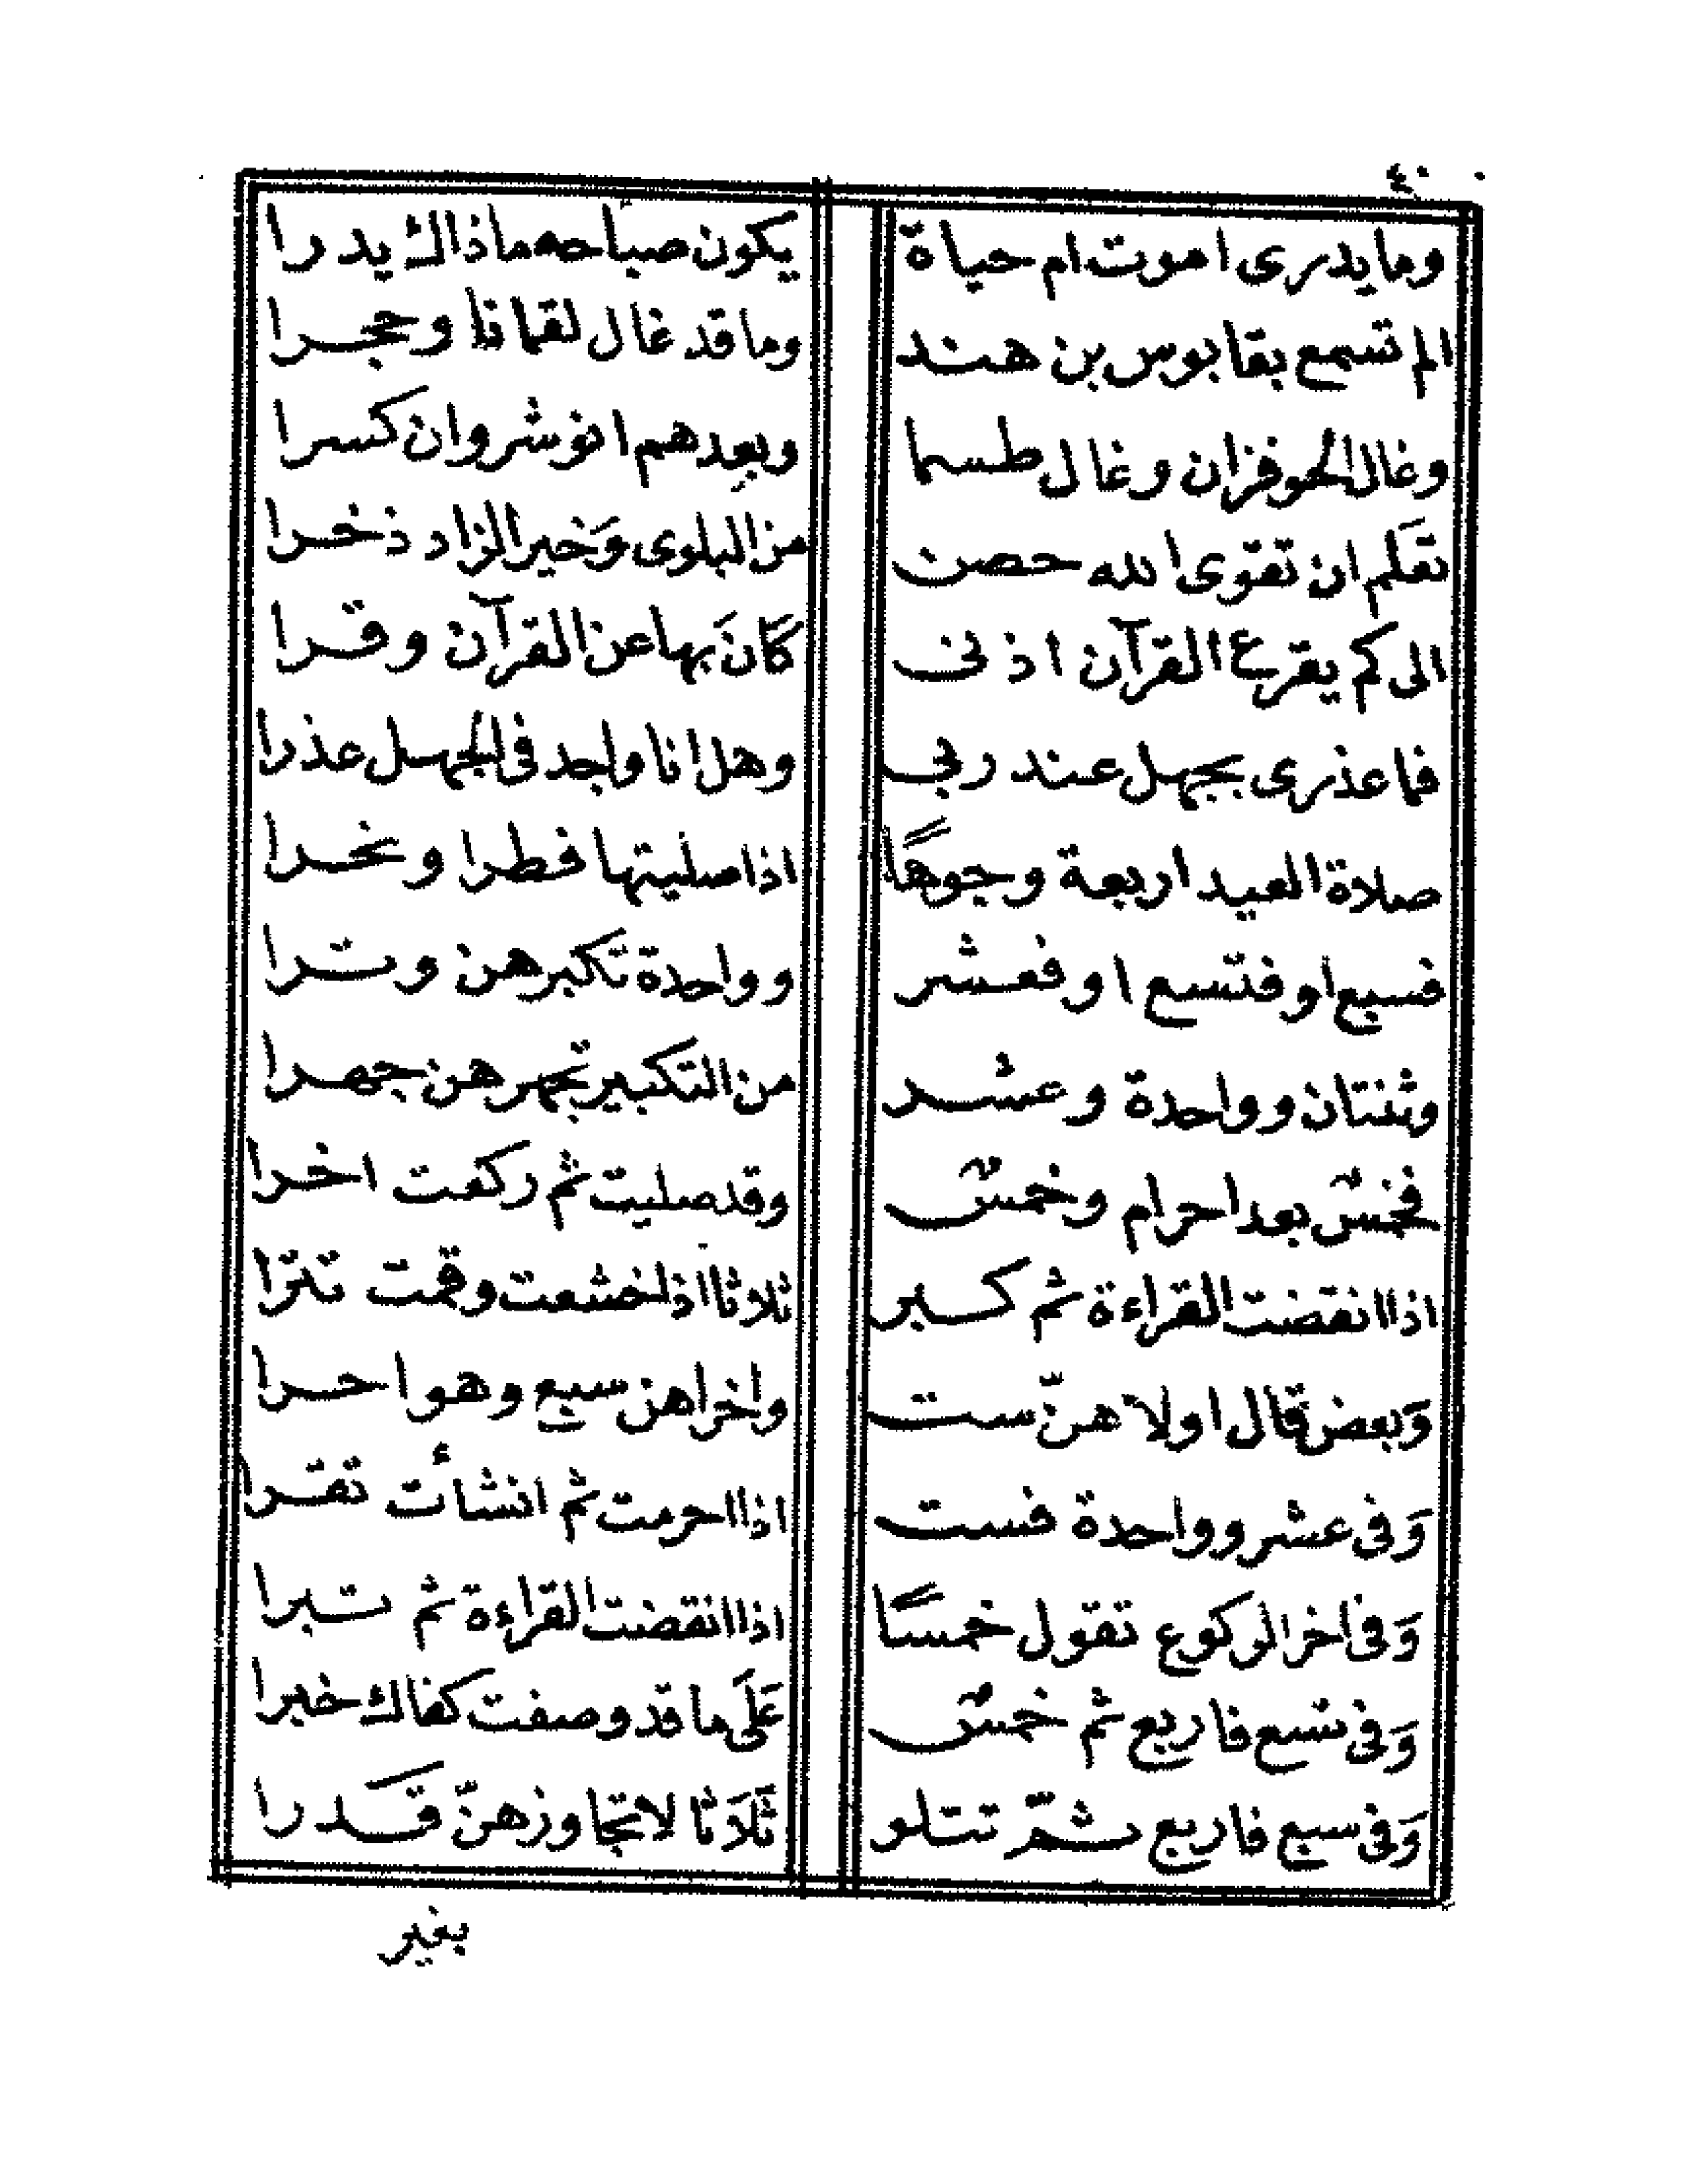 ٤٠
وما يدرى اموت ام حياة يكون صباحه ماذاك يدرا
الم تسمع بقابوس بن هند وما قد غال لقمانا وحجرا
وغال الحوفزان وغال طسما وبعدهم انوشروان كسرا
تعَلم ان تقوى الله حصن من البلوى وَخير الزاد ذخرا
الى كم يقرع القرآن اذنى كَانَ بها عن القرآن وقرا
فما عذرى بجهل عند ربى وهل انا واجد فى الجهل عذرا
صلاة العيد اربعة وجوهًا اذا صليتها فطرا ونحرا
فسبع او فتسع او فعشر وواحدة تكبرهن وترا
وثنتان وواحدة وعشر من التكبير تجهرهن جهرا
فخمسٌ بعد احرام وخمسٌ وقد صليت ثم ركعت اخرا
اذا انقضت القراءة ثم كبر ثلاثا اذا خشعت وقمت تترا
وَبعض قال اولاهنّ ست واخراهن سبع وهو احرا
وَفى عشر وواحدة فست اذا احرمت ثم انشأت تقرا
وَفى اخر الركوع تقول خمسًا اذا انقضت القراءة ثم تبرا
وَفى تسع فاربع ثم خمسٌ عَلَى ما قد وصفت كفاك خبرا
وَفى سبع فاربع ثمّ تتلو ثَلَاثا لا تجاوزهنّ قَدرا
بغير